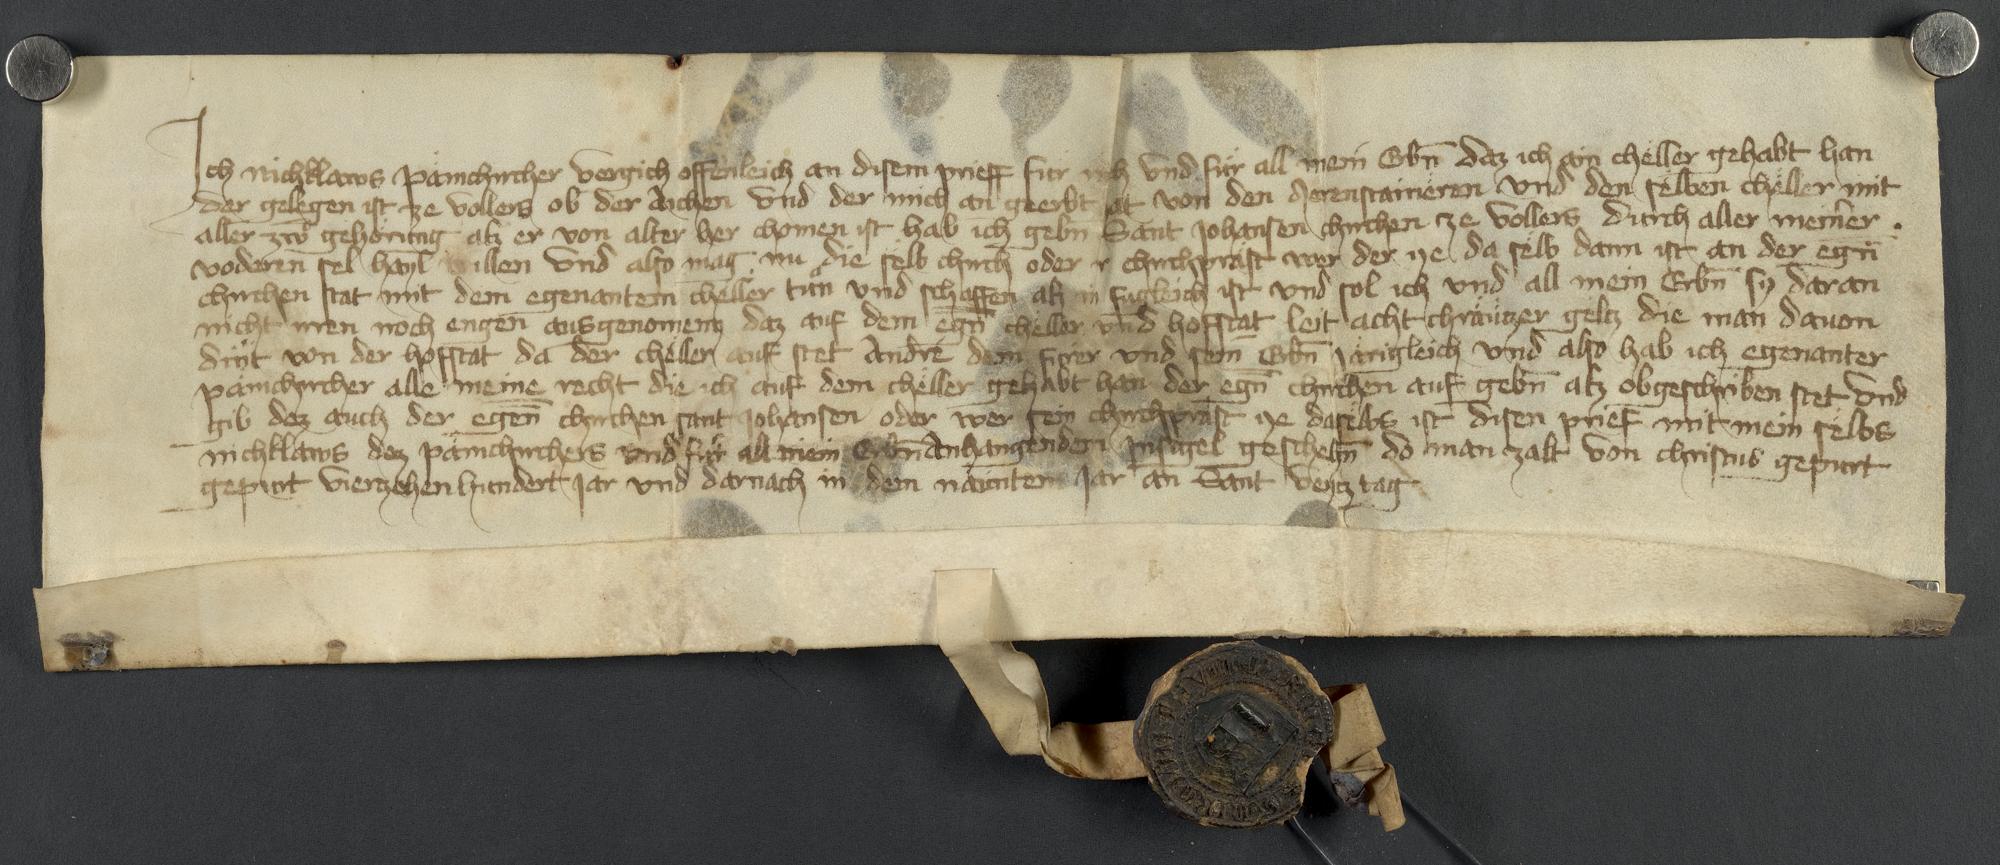 Ich Nichklaws Pämchircher vergich offenleich an disem prieff für mich vnd für all mein Erbn̄ daz ich ain cheller gehabt han
der gelegen ist ze vollers ob der Aichen vnd der mich an geerbt hat von den vnd den selben cheller mit
aller zu gehörung alz er von alter her chomen ist hab ich gebn̄ Sant Johansen chirchen ze vollers durch aller meiner
voderen sel hayl willen vnd also mag nu die selb chirch oder ir chirchpräst wer der ye da selb dann ist an der egn̄
chirchen stat mit dem egenantem cheller tün vnd schaffen alz in fügleich ist vnd sol ich vnd all mein Erbn̄ sy daran
nicht irren noch engen ausgenomen daz auf dem egn̄ cheller vnd hofstat leit acht chräutzer geltz die man dauon
dint von der hofstat da der cheller auf stet Andre dem vnd sein Erbn̄ järigleich vnd also hab ich egenanter
pämchircher alle meine recht die ich auf dem cheller gehabt han der egn̄ chirchen auf gebn̄ alz obgeschriben stet vnd
gib dez auch der egen̄ chirchen sant Johansen oder wer sein chirchpräst ye daselbs ist disen prief mit mein selbs
nichklaws dez pämchirchers vnd für all mein Erbn̄ Anhangenden Insigel geschehn̄ do man zalt von christus gepurt
gepurt vierzehenhundert jar vnd darnach in dem näunten Jar an Sant veytz tag